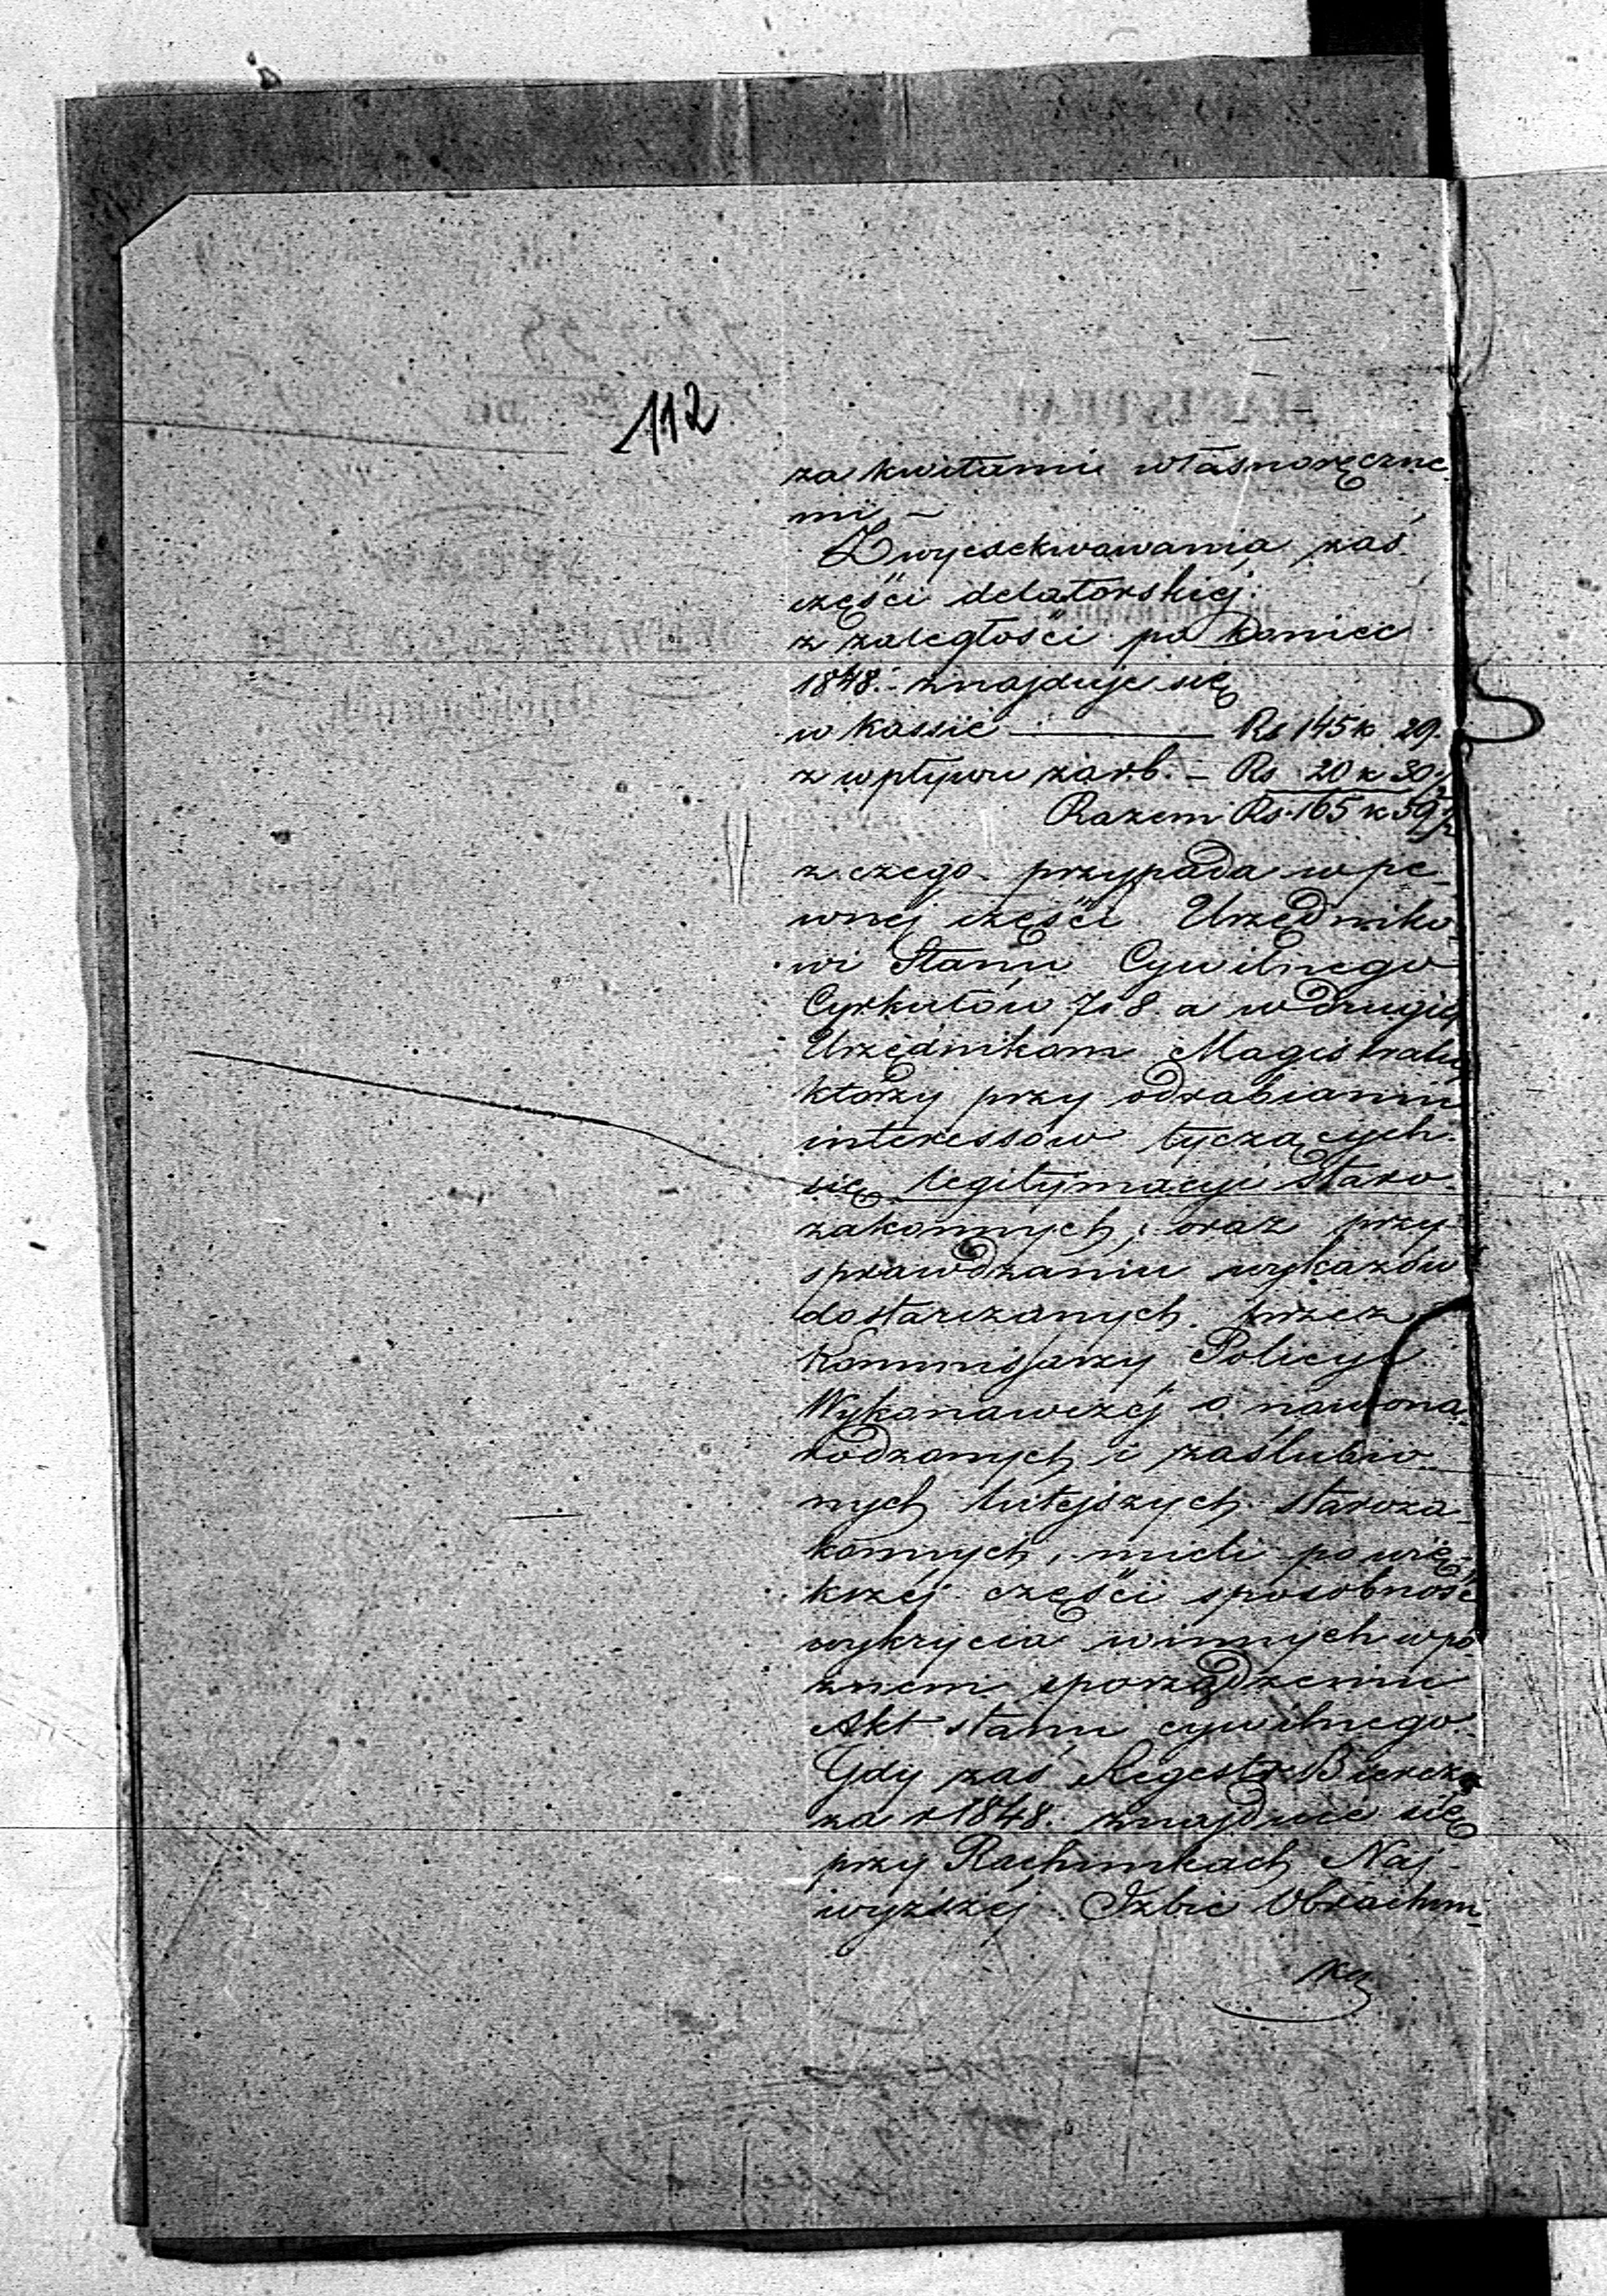 112
za kwitami własnoręczne
mi –
Z wyexekwowania zaś
części delatorskiéj:
z zaległości po koniec
1848. znajduje się
w kassie ——— Rs 145 k 29.
z wpływu zarb. – Rs 20 k 30½
Razem Rs. 165 k 59½
z czego przypada w pe-
wnej części Urzędniko-
wi Stanu Cywilnego
Cyrkułów 7 i 8. a w drugiéj
Urzędnikom Magistratu,
którzy przy odrabianiu
interessów tyczących
się legitymacyi Staro-
zakonnych, oraz przy
sprawdzaniu wykazów
dostarczanych przez
Kommissarzy Policyi
Wykonawczéj o nowona-
rodzonych i zaślubio-
nych tutejszych staroza-
konnych, mieli po wię-
kszéj części sposobność
wykrycia winnych w pó
znem sporządzeniu
Akt stanu cywilnego.
Gdy zaś Regestr Bierczy
za r 1848. znajduje się
przy Rachunkach Naj-
wyższéj Izbie Obrachun-